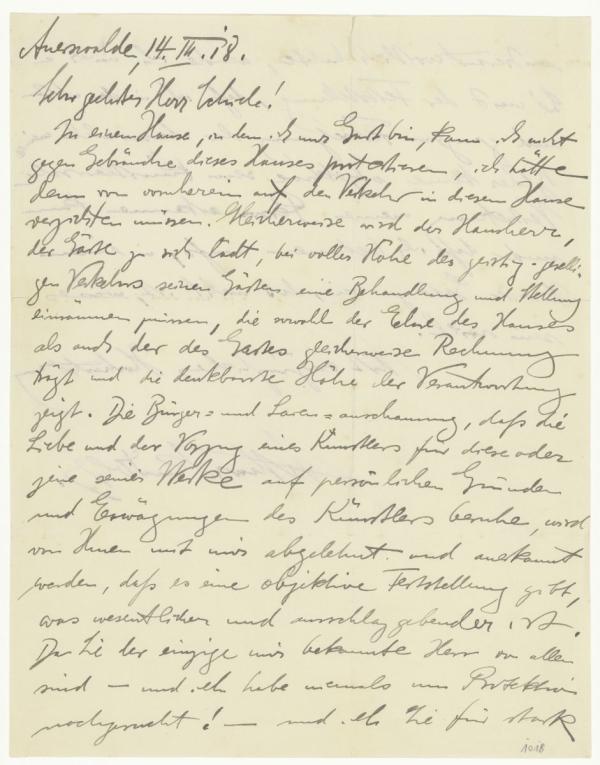 Auerswalde, 14. III. 18.
Sehr geehrter Herr Schiele!
In einem Hause, in dem ich nur Gast bin, kann ich nicht
gegen Gebräuche dieses Hauses protestieren, ich hätte
denn von vornherein auf den Verkehr in diesem Hause
verzichten müssen. Gleicherweise wird der Hausherr,
der Gäste zu sich lädt, bei voller Höhe des geistig-geselli-
gen Verkehrs seinen Gästen eine Behandlung und Stellung
einräumen müssen, die sowohl der Ehre des Hauses
als auch der des Gastes gleicherweise Rechnung
trägt und die denkbarste Höhe der Verantwortung
zeigt. Die Bürger= und Laien=anschauung, daß die
Liebe und der Vorzug eines Künstlers für diese oder
jene seiner Werke auf persönlichen Gründen
und Erwägungen des Künstlers beruhe, wird
von Ihnen mit mir abgelehnt und anerkannt
werden, daß es eine objektive Feststellung gibt,
was wesentlicher und ausschlaggebender ist.
Da Sie der einzige mir bekannte Herr von allen
sind — und ich habe niemals um Protektion
nachgesucht! — und ich Sie für stark
1018